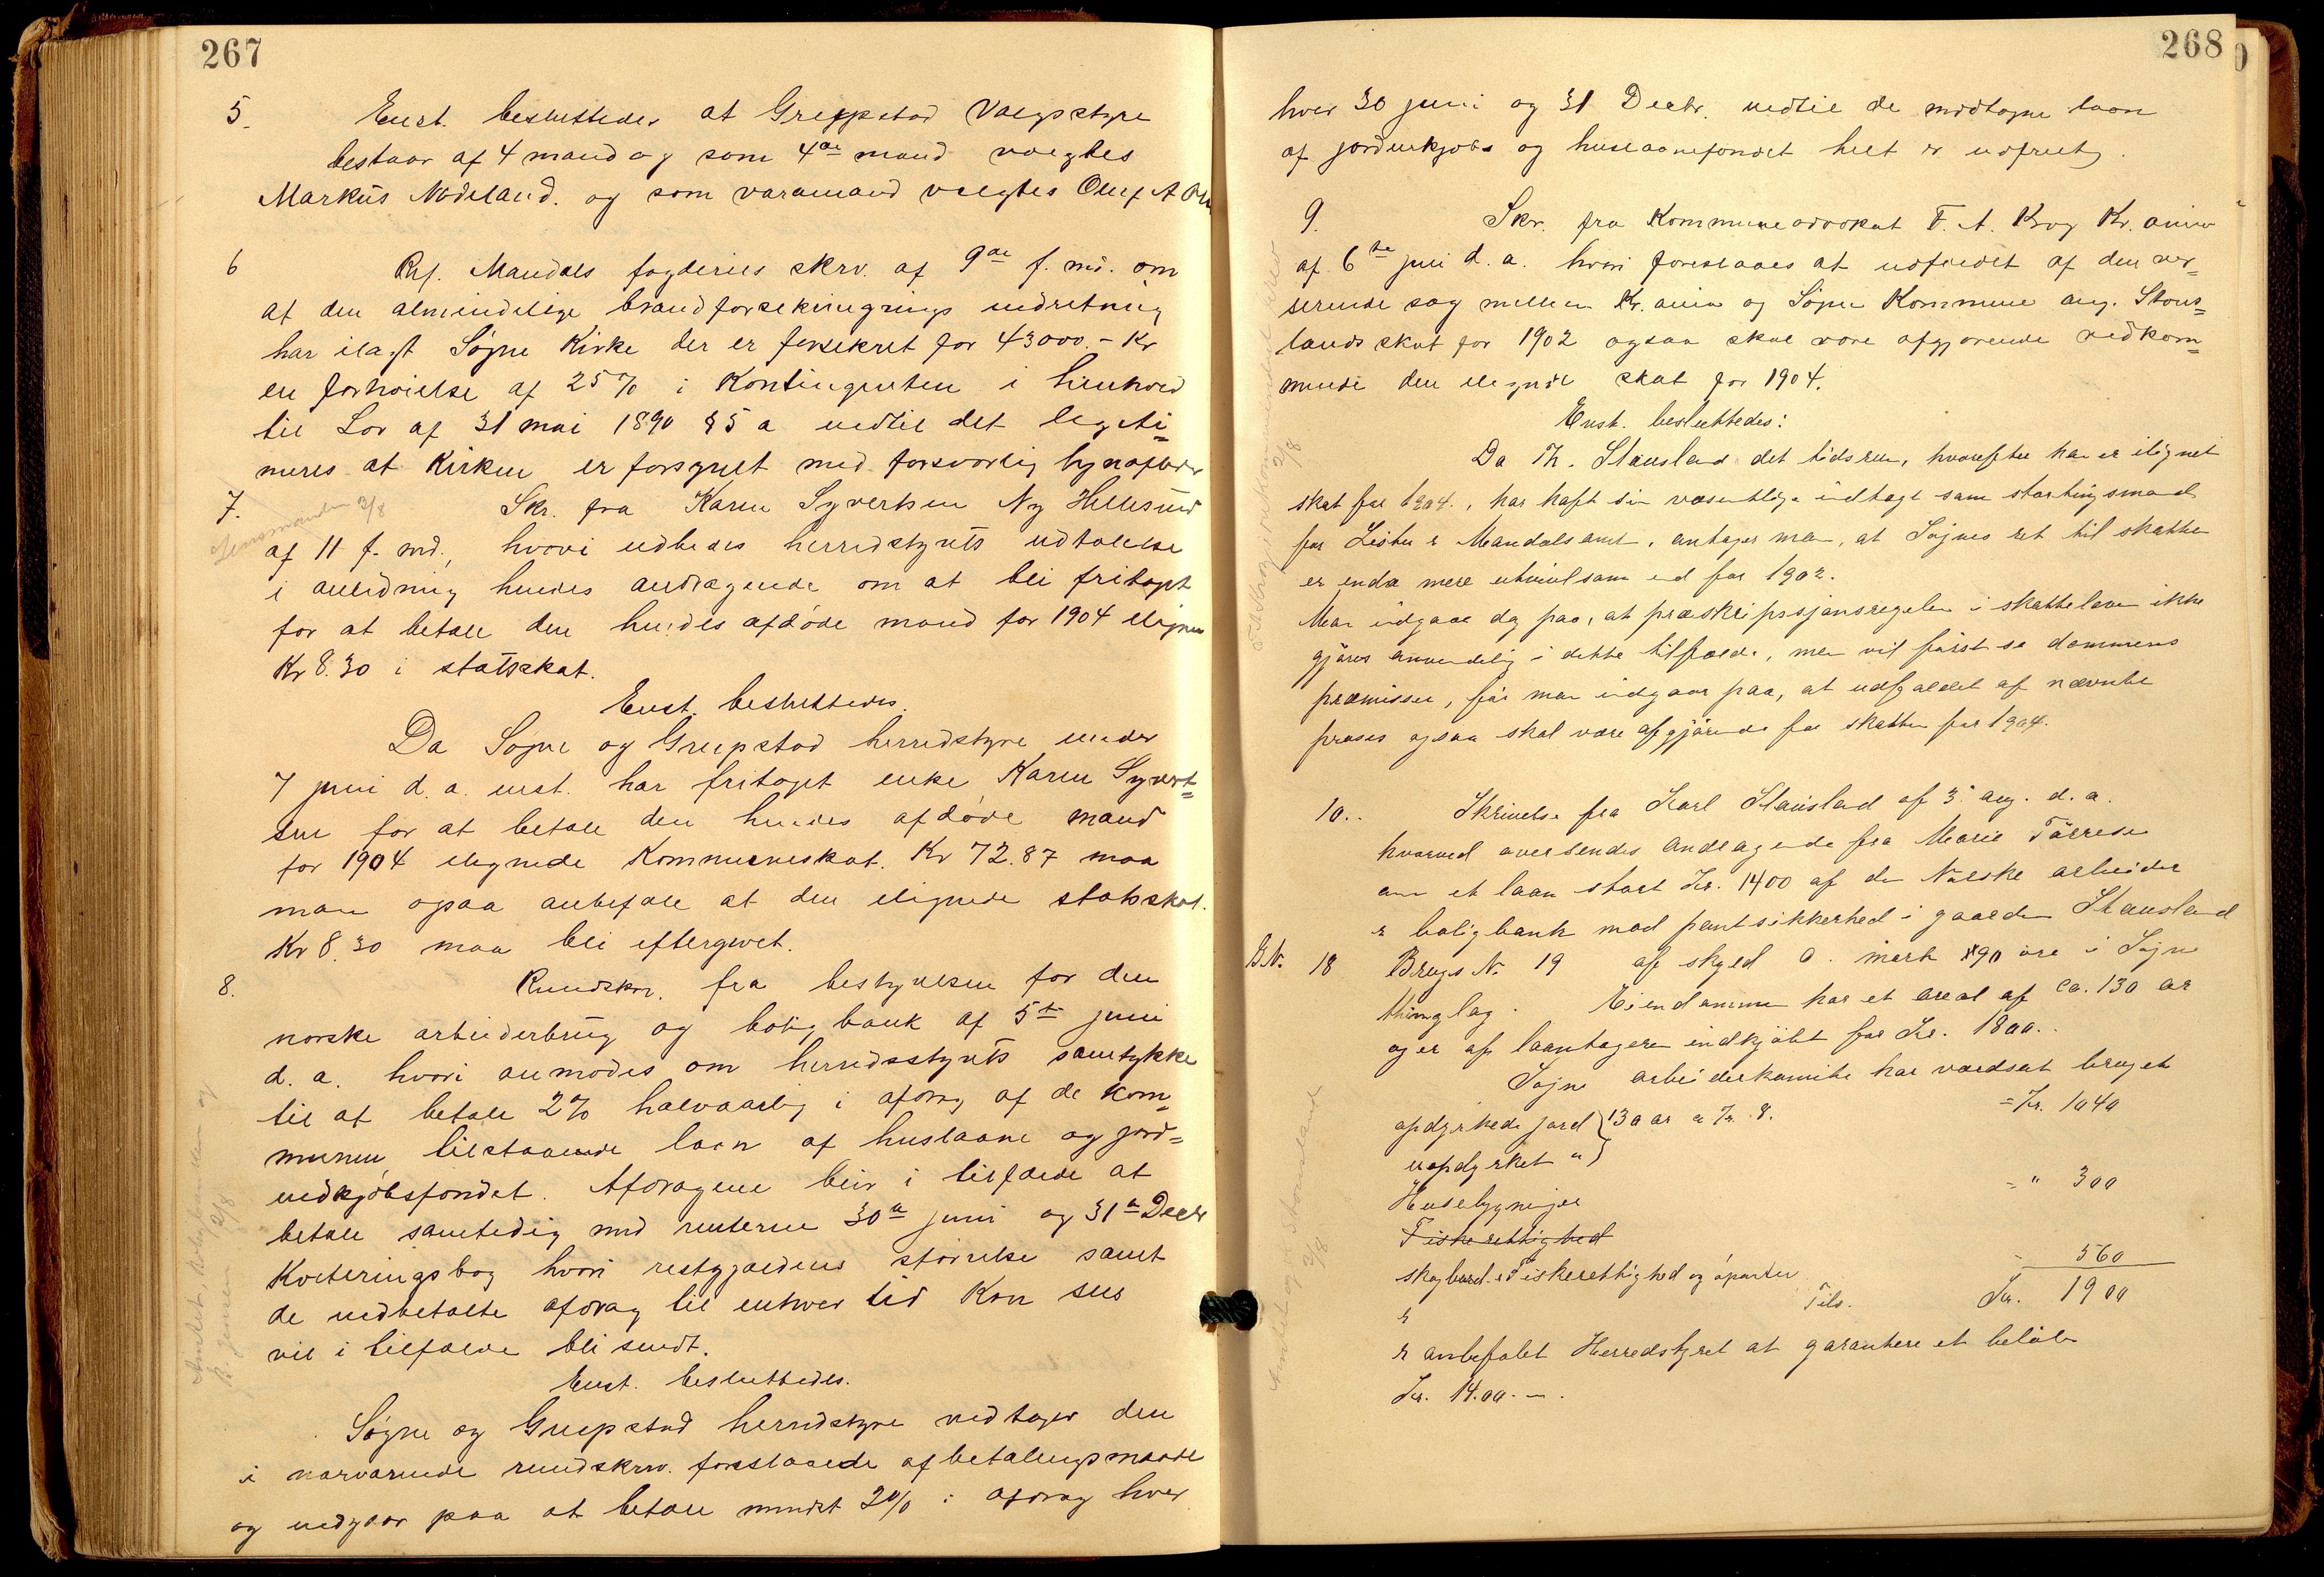 267
5. Enst. besluttedes at Greppstad Valgstyre
bestaar af 4 mand og som 4de mand valgtes
Markus Nodeland. og som varamand valgtes Oluf A
6 Rf. Mandals fogderies skrv. af 9de f. md. om
at den almindelige brandforsekringrings indretning
har ilagt Søgne Kirke der er forsekret for 43000.- Kr
en forhøielse af 25% i Kontingenten i henhold
til Lov af 31 mai 1890 §5 a indtil det legeti=
meres at Kirken er forsynet med forsvarlig lynafleder
7. Skr. fra Karen Syvertsen Ny Hellesund
Lensmanden 3/8
af 11 f. md., hvori udbedes herredstyrets udtalelse
i anledning hendes andragende om at bli fritaget
for at betale den hendes afdøde mand for 1904 ilignede
Kr 8.30 i statsskat.
Enst. besluttedes.
Da Søgne og Greipstad herredstyre under
7 juni d. a. enst. har fritaget enke Karen Syvert=
sen for at betale den hendes afdøde mand
for 1904 ilignede Kommuneskat. Kr 72.87 maa
man ogsaa anbefale at den ilignede statsskat.
Kr 8.30 maa bli eftergivet.
8. Rundskr. fra bestyrelsen for den
norske arbeiderbrug og boligbank af 5te juni
d. a. hvori anmodes om herredsstyrets samtykke
til at betale 2% halvaarlig i afdrag af de kom=
munen tilstaaende laan af huslaane og jord=
indkjøbsfondet. Afdragene blir i tilfælde at
betale samtidig med renterne 30te juni og 31te Decbr
Kvitteringsbog hvori restgjældens størrelse samt
de indbetalte afdrag til enhver tid kan sees
vil i tilfælde bli sendt.
Anmeldt,
B. Jensen 2/8
Enst. besluttedes.
Søgne og Greipstad herredstyre vedtager den
i nærværende rundskrv. foreslaaede afbetalingsmaade
og indgaar paa at betale mindst 2% i afdrag hver
268
hver 30 juni og 31 Decbr. indtil de modtagne laan
af jordindkjøbs og huslaanefondet helt er udfriet.
9. Skr. fra Kommuneadvokat F. A. Krog Kr. ania
af 6te juni d. a. hvori foreslaaes at udfaldet af den ver=
serende sag mellem Kr. ania og Søgne Kommune ang. Stous=
lands skat for 1902 ogsaa skal være afgjørende vedkom=
mende den ilignede skat for 1904.
Enst. besluttedes:
Da Th. Stausland det tidsrum, hvorefter han er ilignet
skat for 1904., har haft sin væsentlige indtægt som stortingsmand
for Lister & Mandals amt, antager man, at Søgnes ret til skatten
er enda mere utvivlsom end for 1902.
Man indgaar dog paa, at præskripssjonsregelen i skatteloven ikke
gjøres anvendelig i dette tilfælde, men vil først se dommens
præmisser, før man indgaar paa, at udfaldet af nævnte
proses ogsaa skal være afgjørende for skatten for 1904.
2/8
10.. Skrivelse fra Karl Stausland af 3. aug. d. a.
hvorved oversendes andragende fra Marie Tørresen
om et laan stort Kr. 1400 af den Norske arbeider
& boligbank mod pantsikkerhed i gaarden Stausland
G.N. 18 Brugs N. 19 af skyld 0. mark 90 øre i Søgne
thinglag. Eiendommen har et areal af ca. 130 ar
og er af laantageren indkjøbt for Kr. 1800..
Søgne arbeiderkomite har værdsat bruget
opdyrkede jord } 130 ar a Kr. 8. = Kr. 1040
uopdyrket " }
Husebygninger = " 300
Fiskerettighed
skogbund & Fiskerettighed og øparter - 560
Tils. Kr. 1900
&
& anbefalet Herredstyret at garantere et beløb
Kr. 14.00.-.
Anmeldt Stousland
3/8